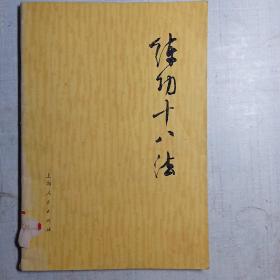 练功十八法
上海人民出版社